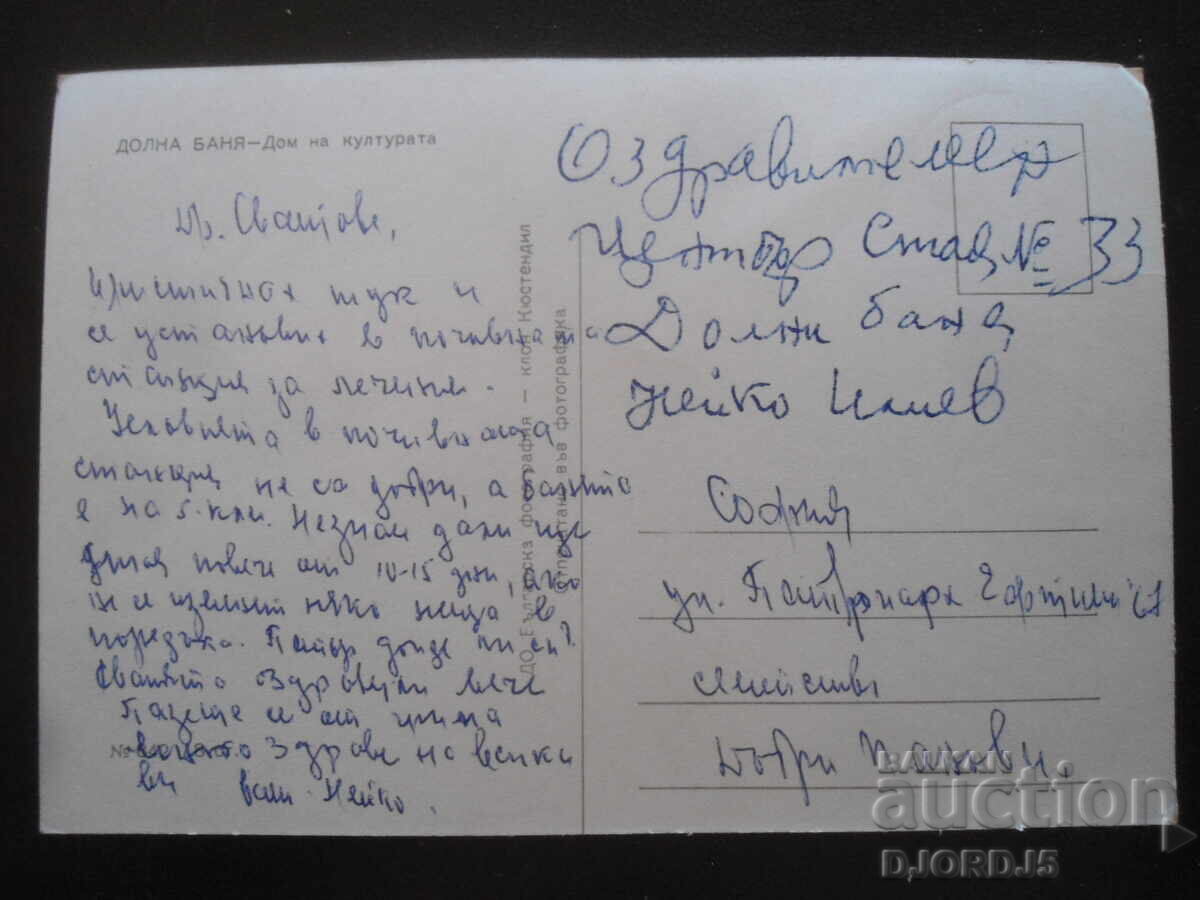 ДОЛНА БАНЯ—Дом на културата
Др. Сватове,
Пристигнах тук и
се установих в почивната
станция за лечение.
Условията в почивната
станция не са добри, а банята
е на 5-км. Незнам дали ще
повече от 10-15 дни, ако
не се няко неща в
порядъка. Петър дойде ли си?
Сватята оздравяли вече
Пазете се от
Здраве на всички
ви ваш Нейко.
ДО Българска фотография — клон Кюстендил
Отпечатано във фотографика
№
Оздравителен
Център Стая № 33
Долни баня
Нейко Илиев
София
ул. Патриарх Евтимий
семейство
Добри
БАЛКАН
auction
DJORDJ5